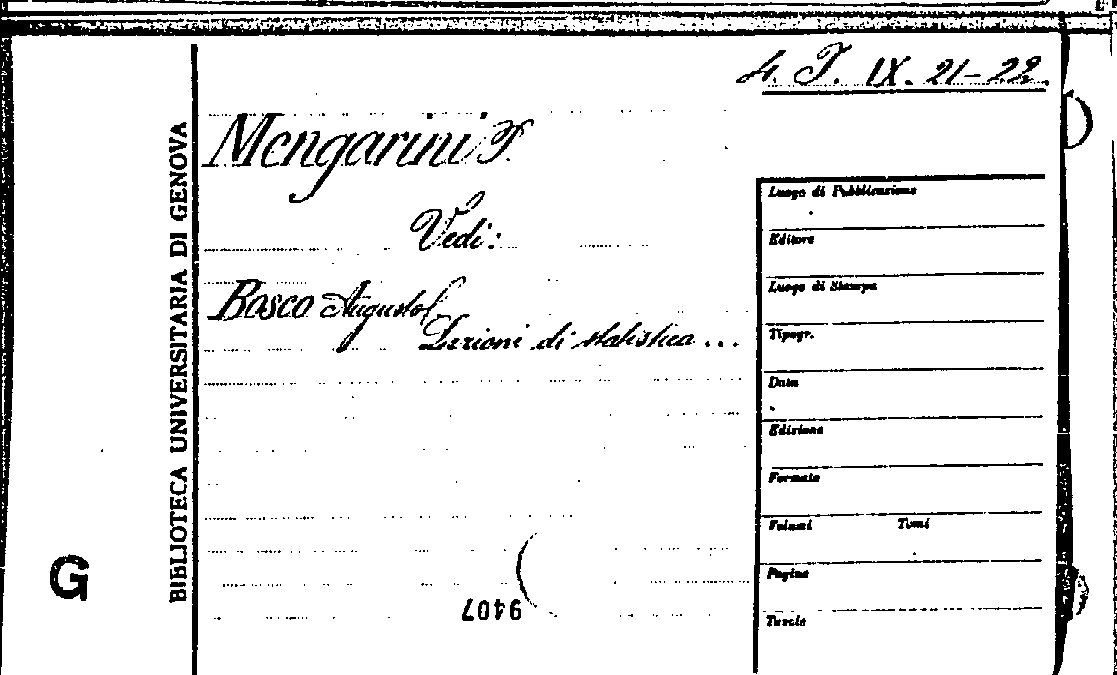 4. T. IX. 21-22.
Mengarini T.
Vedi:
Bosco Augusto
Lezioni di statistica...
BIBLIOTECA UNIVERSITARIA DI GENOVA
G
9407
Luogo di Pubblicazione
Editore
Luogo di Stampa
Tipogr.
Data
Edizione
Formato
Volumi Tomi
Pagine
Tavole